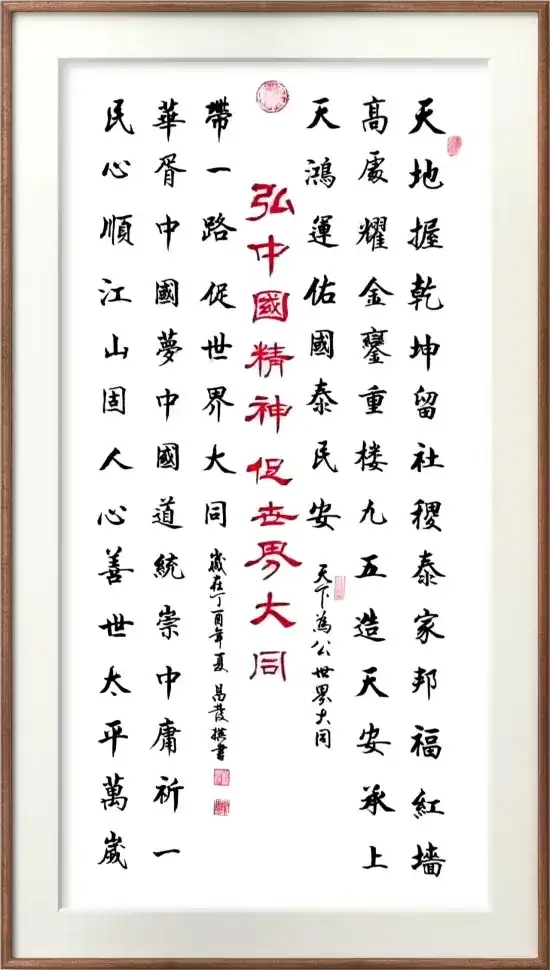 天地握乾坤留社稷泰家邦福紅墻
高處耀金鑾重楼九五造天安承上
天鴻運佑國泰民安
天下為公世界大同
弘中國精神促世界大同
民心順江山固人心善世太平萬歲
華胥中國夢中國道統崇中庸祈一
帶一路促世界大同
歲在丁酉年夏 昌發撰書